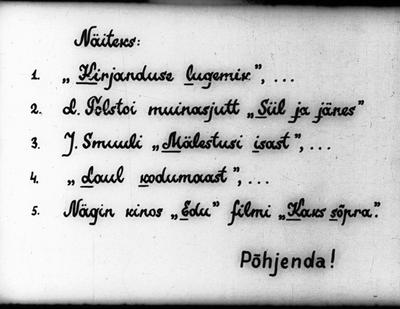 Näiteks:
1. „Kirjanduse lugemik”, ...
2. L. Tolstoi muinasjutt „Siil ja jänes”
3. J. Smuuli „Mälestusi isast”, ...
4. „Laul kodumaast”, ...
5. Nägin kinos „Edu” filmi „Kaks sõpra”.
Põhjenda!